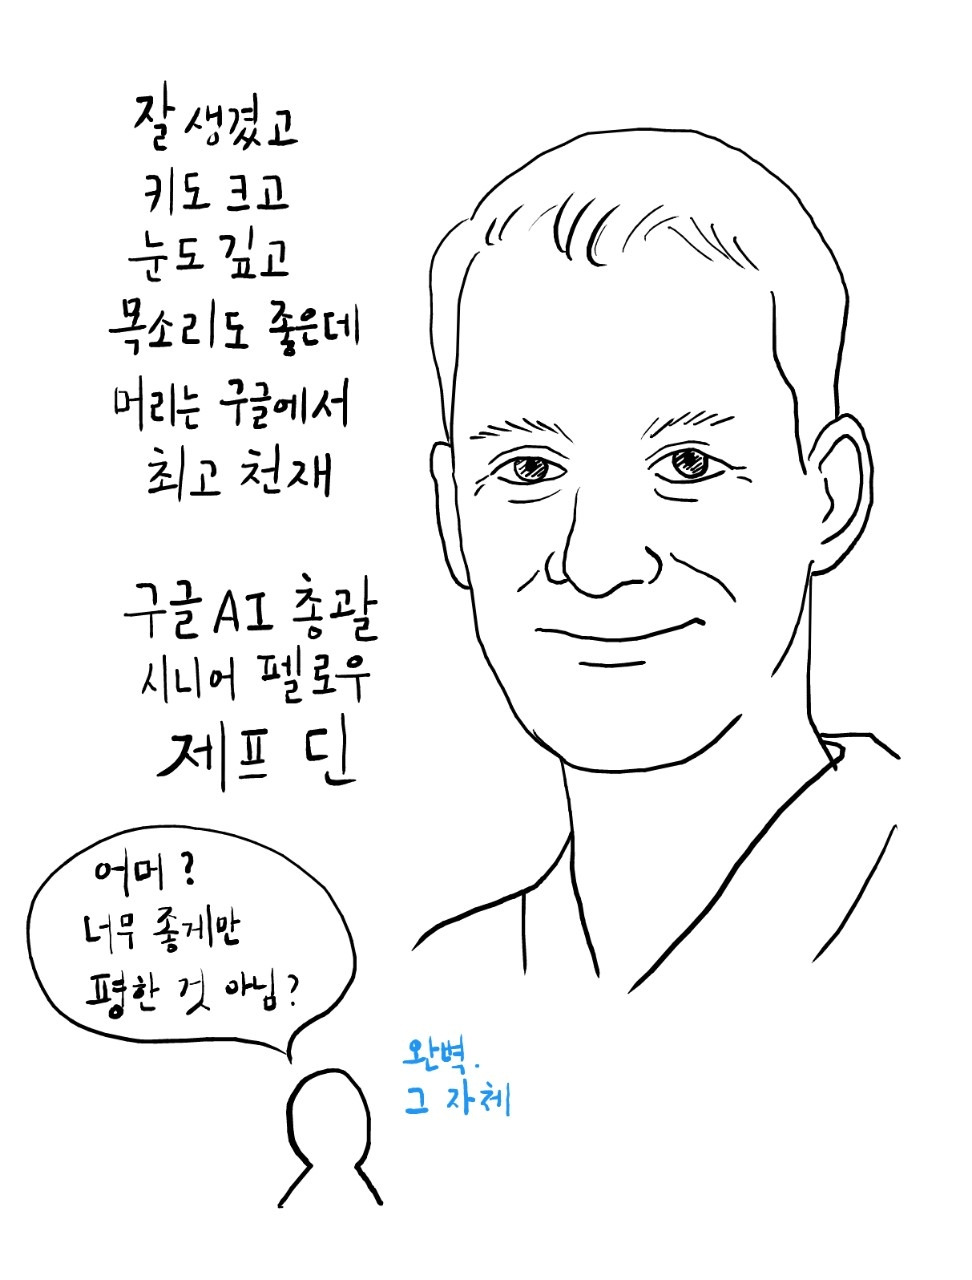 잘생겼고
키도 크고
눈도 깊고
목소리도 좋은데
머리는 구글에서
최고 천재
구글 AI 총괄
시니어 펠로우
제프 딘
어머?
너무 좋게만
평한 것 아님?
완벽.
그 자체